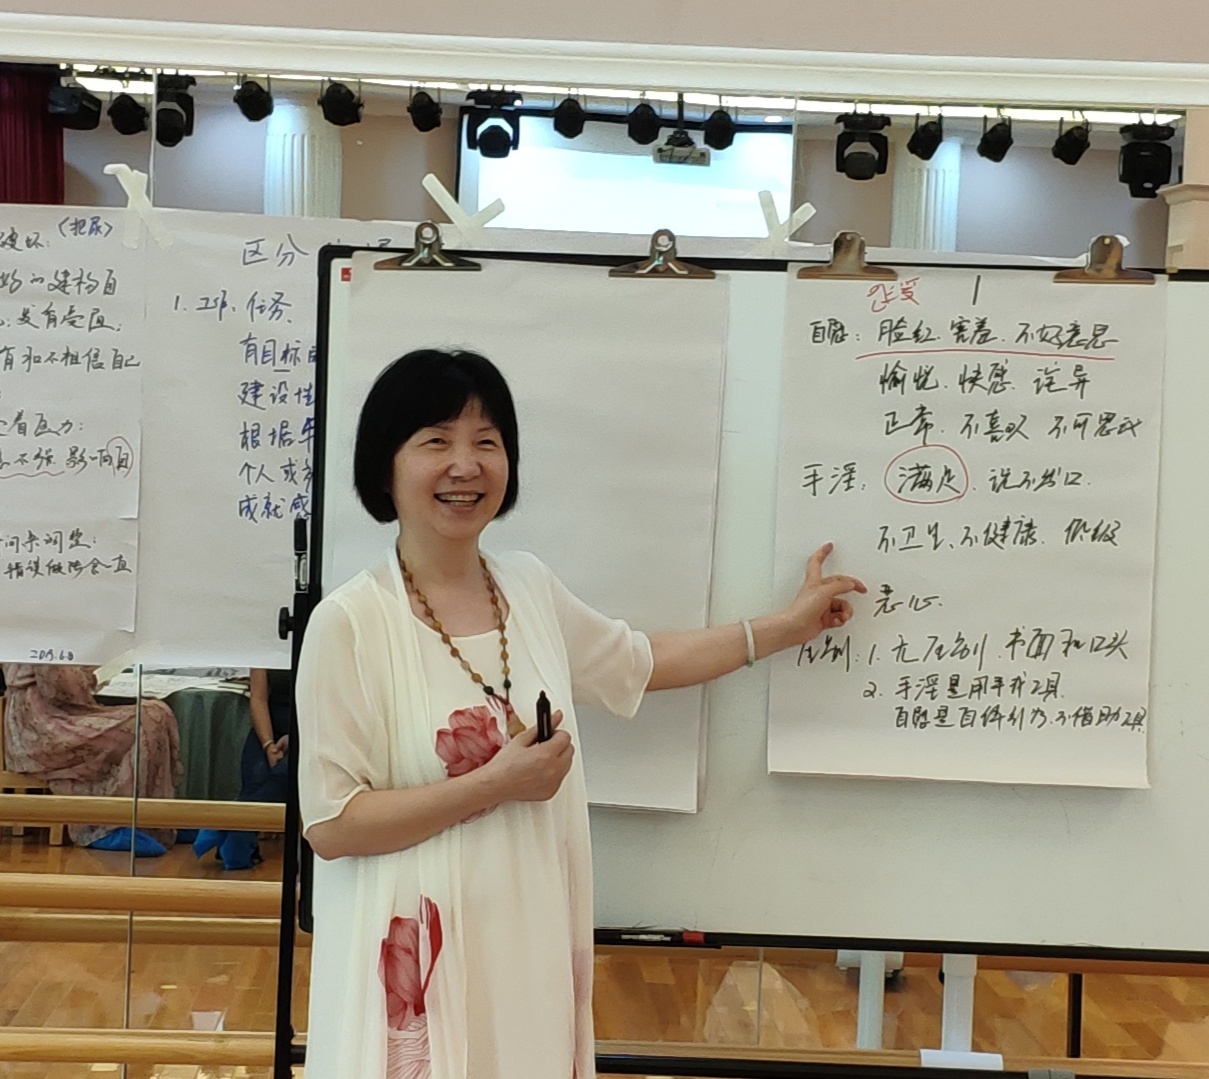 破坏：〈把尿〉
的建构自
没有受阻，
有和不相信自己
着压力：
不强 影响自
问来调整：
情绪做法会一直
2019.6.8
区分
1. 工作、任务、
有目标
建设性
根据年
个人或
成就感
感受 1
自慰：脸红、害羞、不好意思
愉悦、快感、诧异
正常、不喜欢 不可思议
手淫：满足、说不出口.
不卫生、不健康、低级
恶心.
区别：1. 无区别，书面和口头
2. 手淫是用手或工具
自慰是自体行为，不借助工具